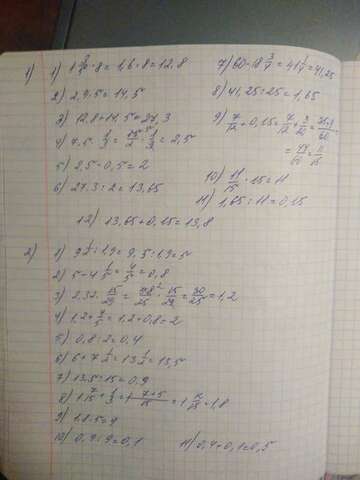 1) 1) 1 3/5 · 8 = 1,6 · 8 = 12,8
2) 2,9 · 5 = 14,5
3) 12,8 + 14,5 = 27,3
4) 7,5 · 1/3 = 15/2 · 1/3 = 2,5
5) 2,5 - 0,5 = 2
6) 27,3 : 2 = 13,65
7) 60 - 18 3/4 = 41 1/4 = 41,25
8) 41,25 : 25 = 1,65
9) 7/12 + 0,15 = 7/12 + 3/20 =
= 44/60 = 11/15
10) 11/15 · 15 = 11
11) 1,65 : 11 = 0,15
12) 13,65 + 0,15 = 13,8
2) 1) 9 1/2 : 1,9 = 9,5 : 1,9 = 5
2) 5 - 4 1/5 = 4/5 = 0,8
3) 2,32 · 15/29 = 58/25 · 15/29 = 30/25 = 1,2
4) 1,2 + 4/5 = 1,2 + 0,8 = 2
5) 0,8 : 2 = 0,4
6) 6 + 7 1/2 = 13 1/2 = 13,5
7) 13,5 : 15 = 0,9
8) 1 7/15 + 1/3 = 1 7+5/15 = 1 12/15 = 1,8
9) 1,8 · 5 = 9
10) 0,9 : 9 = 0,1
11) 0,4 + 0,1 = 0,5